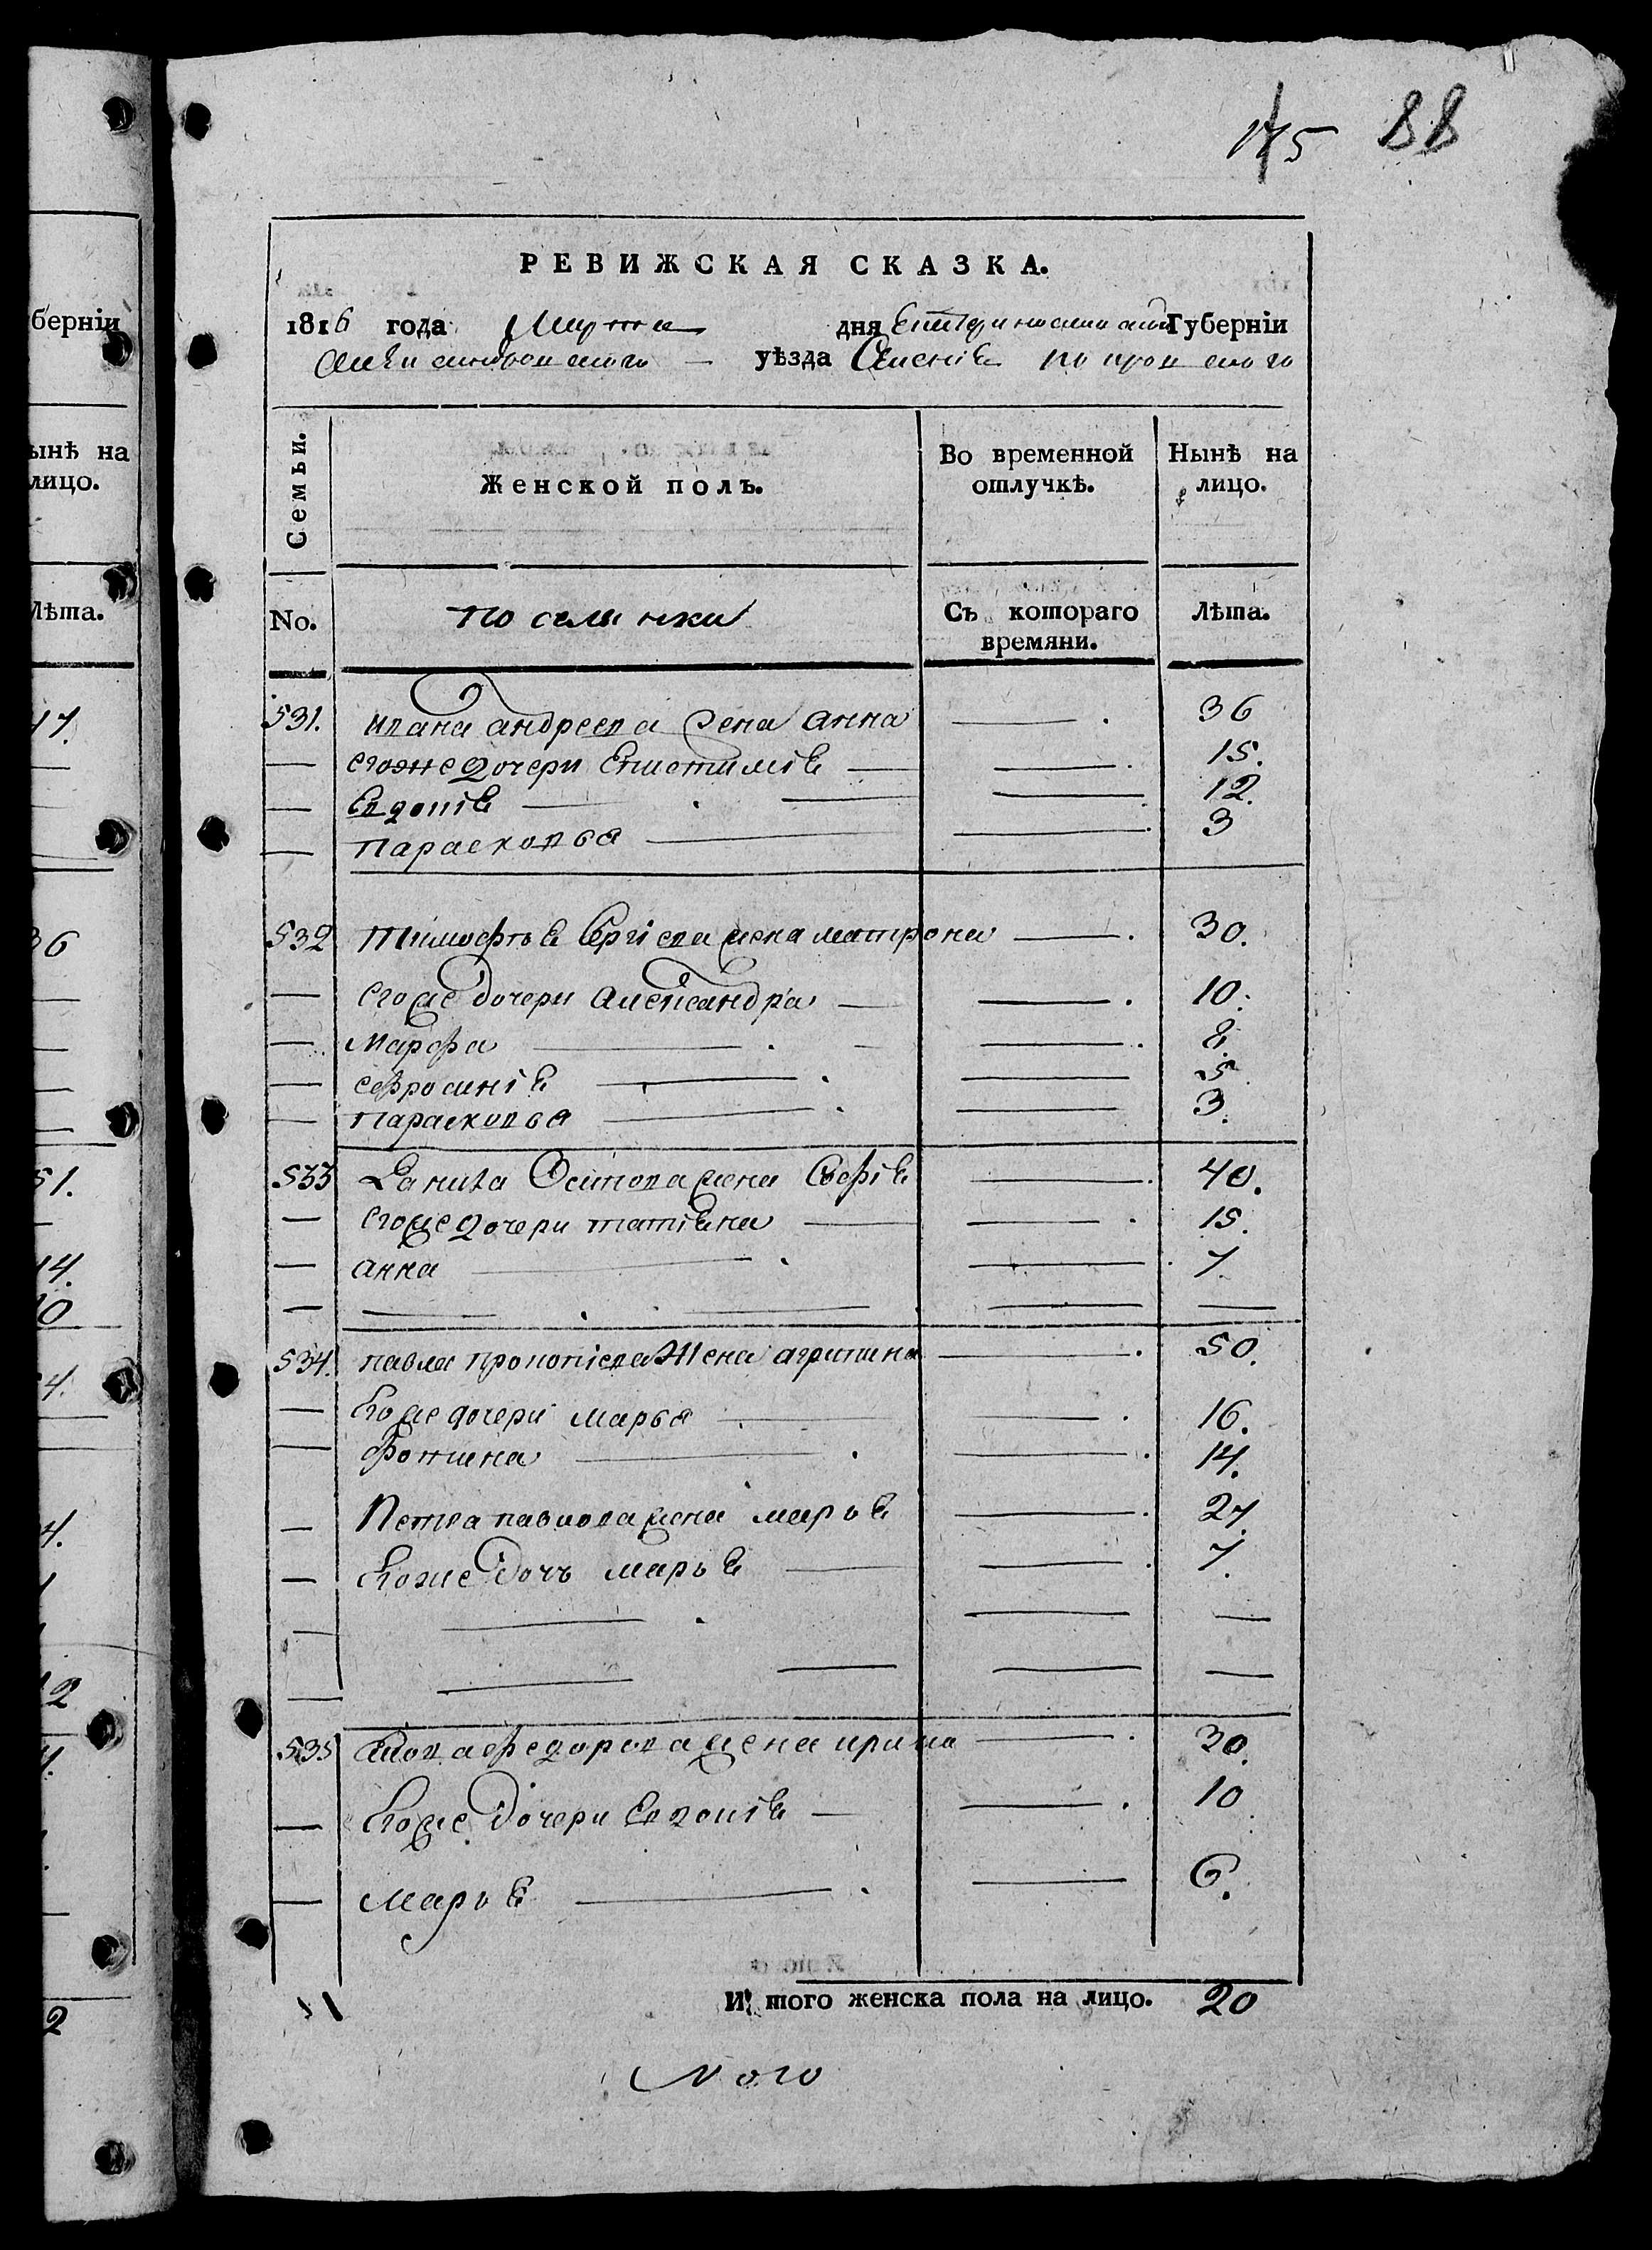 175 88
берніи
ынѣ на
лицо.
Лѣта.
РЕВИЖСКАЯ СКАЗКА.
1816 года Марта дня Екатеринославской Губерніи
Александровского уѣзда
Семьи.
Женской полъ.
Во временной отлучкѣ.
Нынѣ на лицо.
No.
поселянки
Съ котораго времяни.
Лѣта.
531. Ивана андреева жена анна — 36
— егоже дочери Епистимія — 15.
— Евдокія — 12.
— Парасковья — 3
532 Тимофѣя Сергіева жена матрона — 30.
— егоже дочери александра — 10.
— Марфа — 8.
— ефросинія — 5
— Парасковья — 3.
533 Данила Осипова жена Софія — 40.
— егоже дочери татіяна — 15.
— анна — 7
534. павла прокопіева Жена агрипина — 50.
— Егоже дочери марья — 16.
— фотина — 14.
— Петра павлова жена марья — 27.
— Егоже дочь марья — 7.
535 федорова жена ирина — 30.
— Егоже дочери Евдокія — 10
— марья — 6.
И того женска пола на лицо. 20